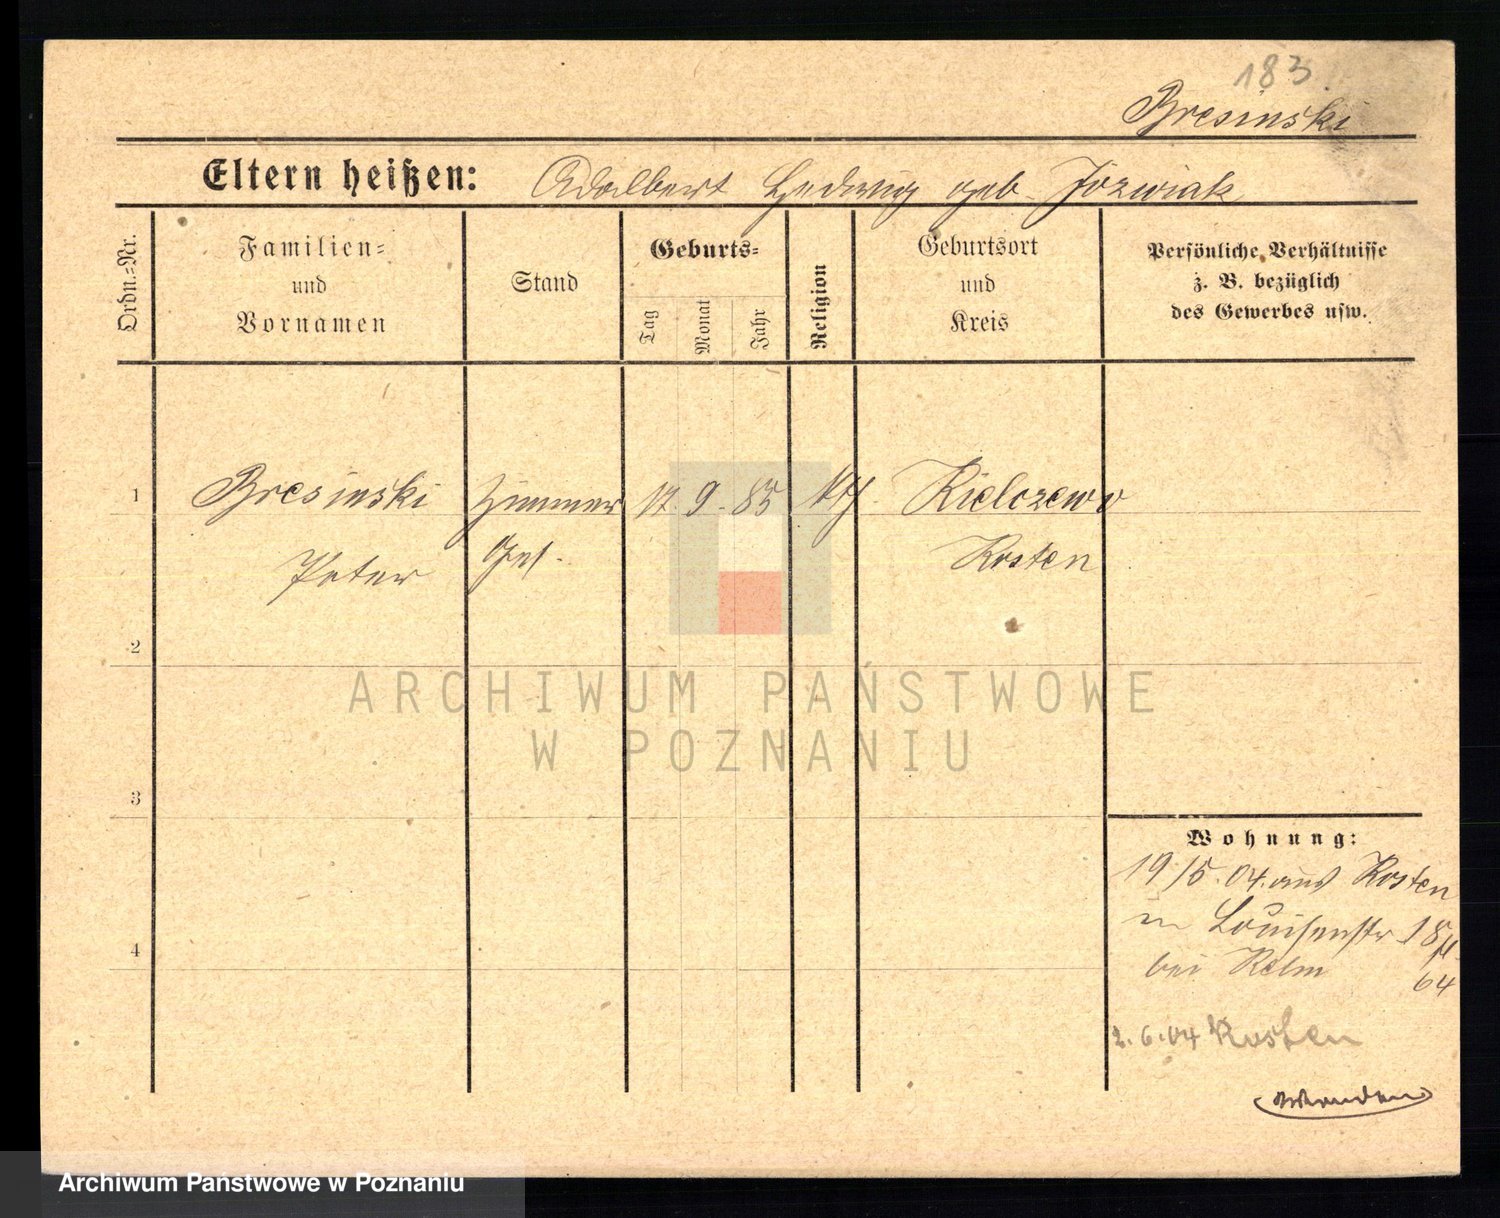 183
Bresinski
Eltern heißen: Adalbert Hedwig geb. Jozwiak
Ordn.=Nr.
Familien=
und
Vornamen
Stand
Geburts=
Tag
Monat
Jahr
Religion
Geburtsort
und
Kreis
Persönliche Verhältnisse
z. B. bezüglich
des Gewerbes usw.
1 Bresinski Zimmer 17. 9. 85 kth. Kielczewo
Peter Ges. Kosten
2
3
4
Wohnung:
19/5. 04. aus Kosten
n Louisenstr 18
bei
64
2.6.04 Kosten
ARCHIWUM PAŃSTWOWE
W POZNANIU
Archiwum Państwowe w Poznaniu